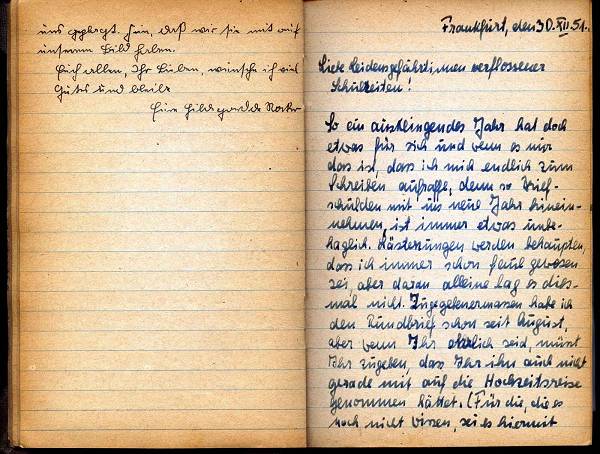 uns gesagt. Fein, daß wir sie mit auf
unserem Bild haben.
Euch allen, Ihr Lieben, wünsche ich viel
Gutes und bleibe
Eure Hildegard
Frankfurt, den 30. XII. 51.
Liebe Leidensgefährtinnen verflossener
Schulzeiten!
So ein ausklingendes Jahr hat doch
etwas für sich und wenn es nur
das ist, dass ich mich endlich zum
Schreiben aufraffe, denn so Brief-
schulden mit ins neue Jahr hinein-
nehmen, ist immer etwas unbe-
haglich. Lästerzungen werden behaupten,
dass ich immer schon faul gewesen
sei, aber daran alleine lag es dies-
mal nicht. Zugegebenermassen habe ich
den Rundbrief schon seit August,
aber wenn Ihr ehrlich seid, müsst
Ihr zugeben, dass Ihr ihn auch nicht
gerade mit auf die Hochzeitsreise
genommen hättet. (Für die, die es
noch nicht wissen, sei es hiermit